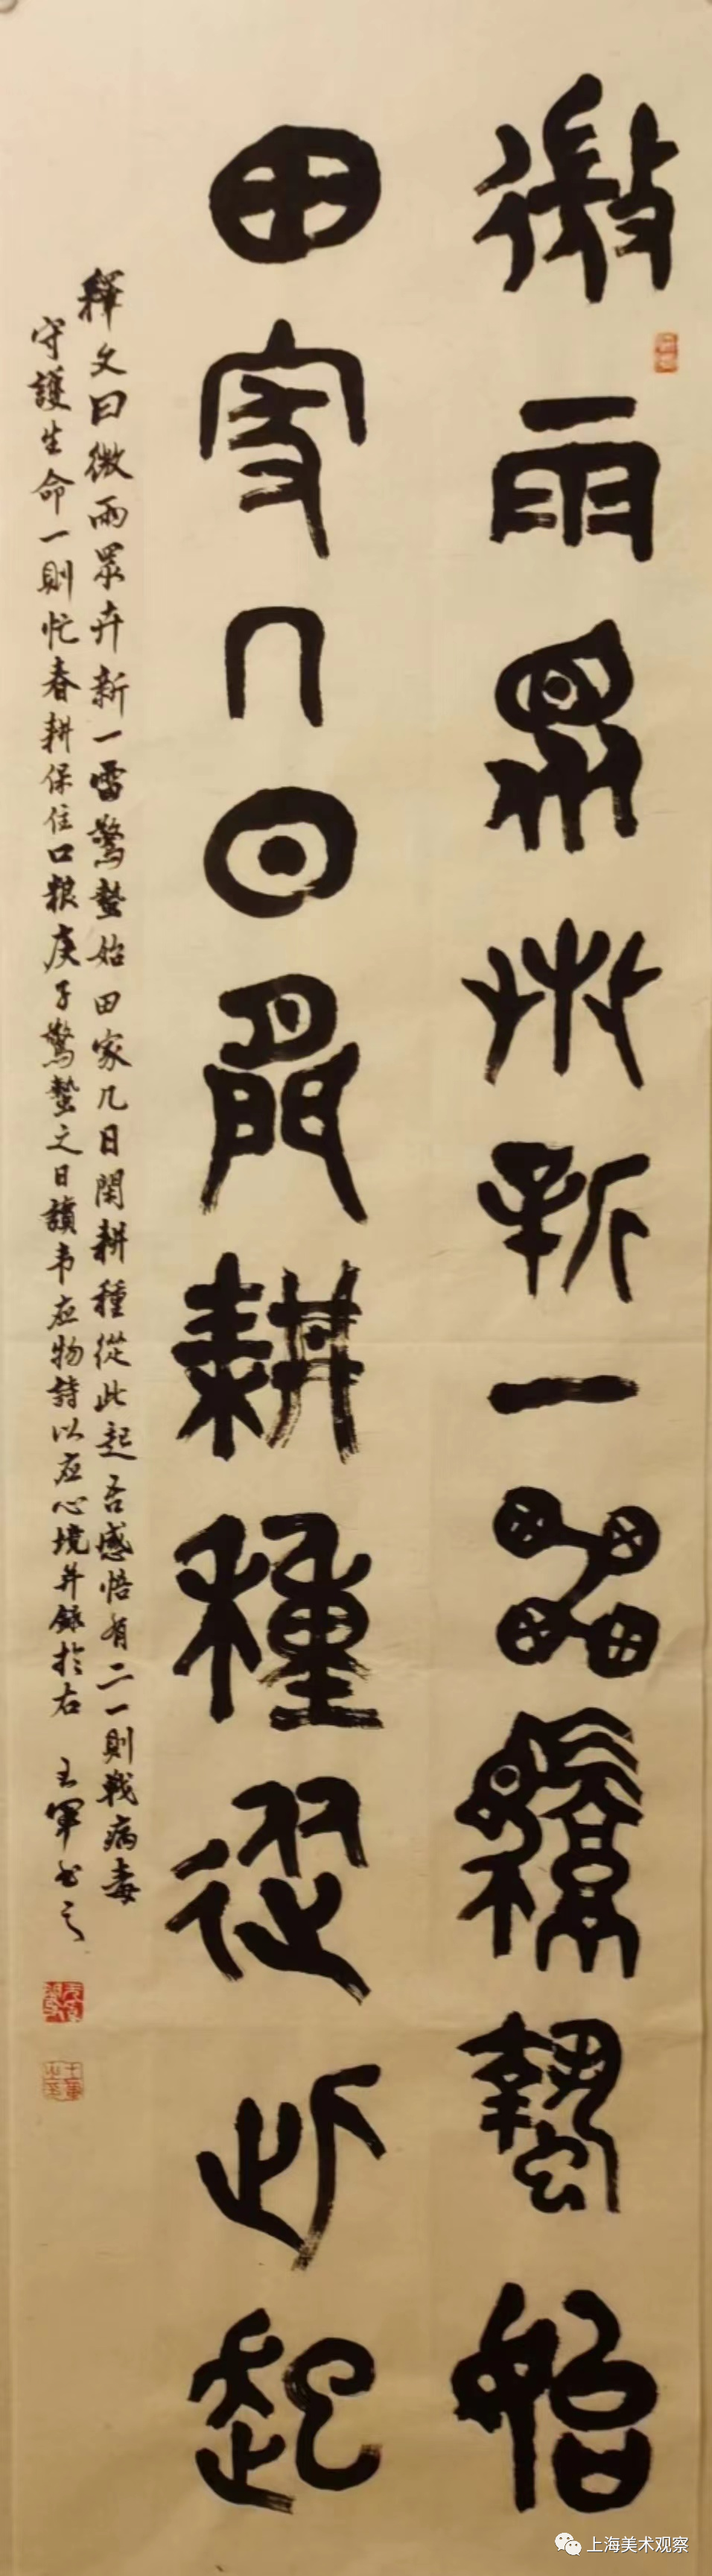 微雨眾卉新一雷驚蟄始
田家几日閒耕種從此起
釋文曰微雨眾卉新一雷驚蟄始田家几日閒耕種從此起吾感悟有二一則戰病毒
守護生命一則忙春耕保住口粮庚子驚蟄之日讀韦应物詩以应心境并錄於右 王軍书之
上海美术观察